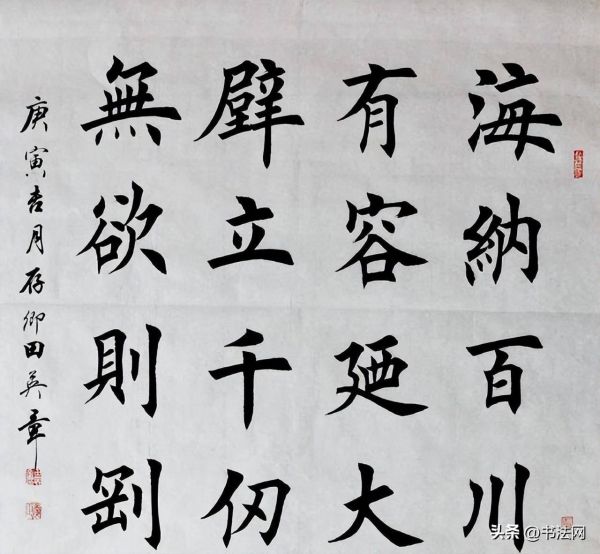 海納百川
有容廼大
壁立千仞
無欲則剛
庚寅杏月存卿田英章
头条 @书法网